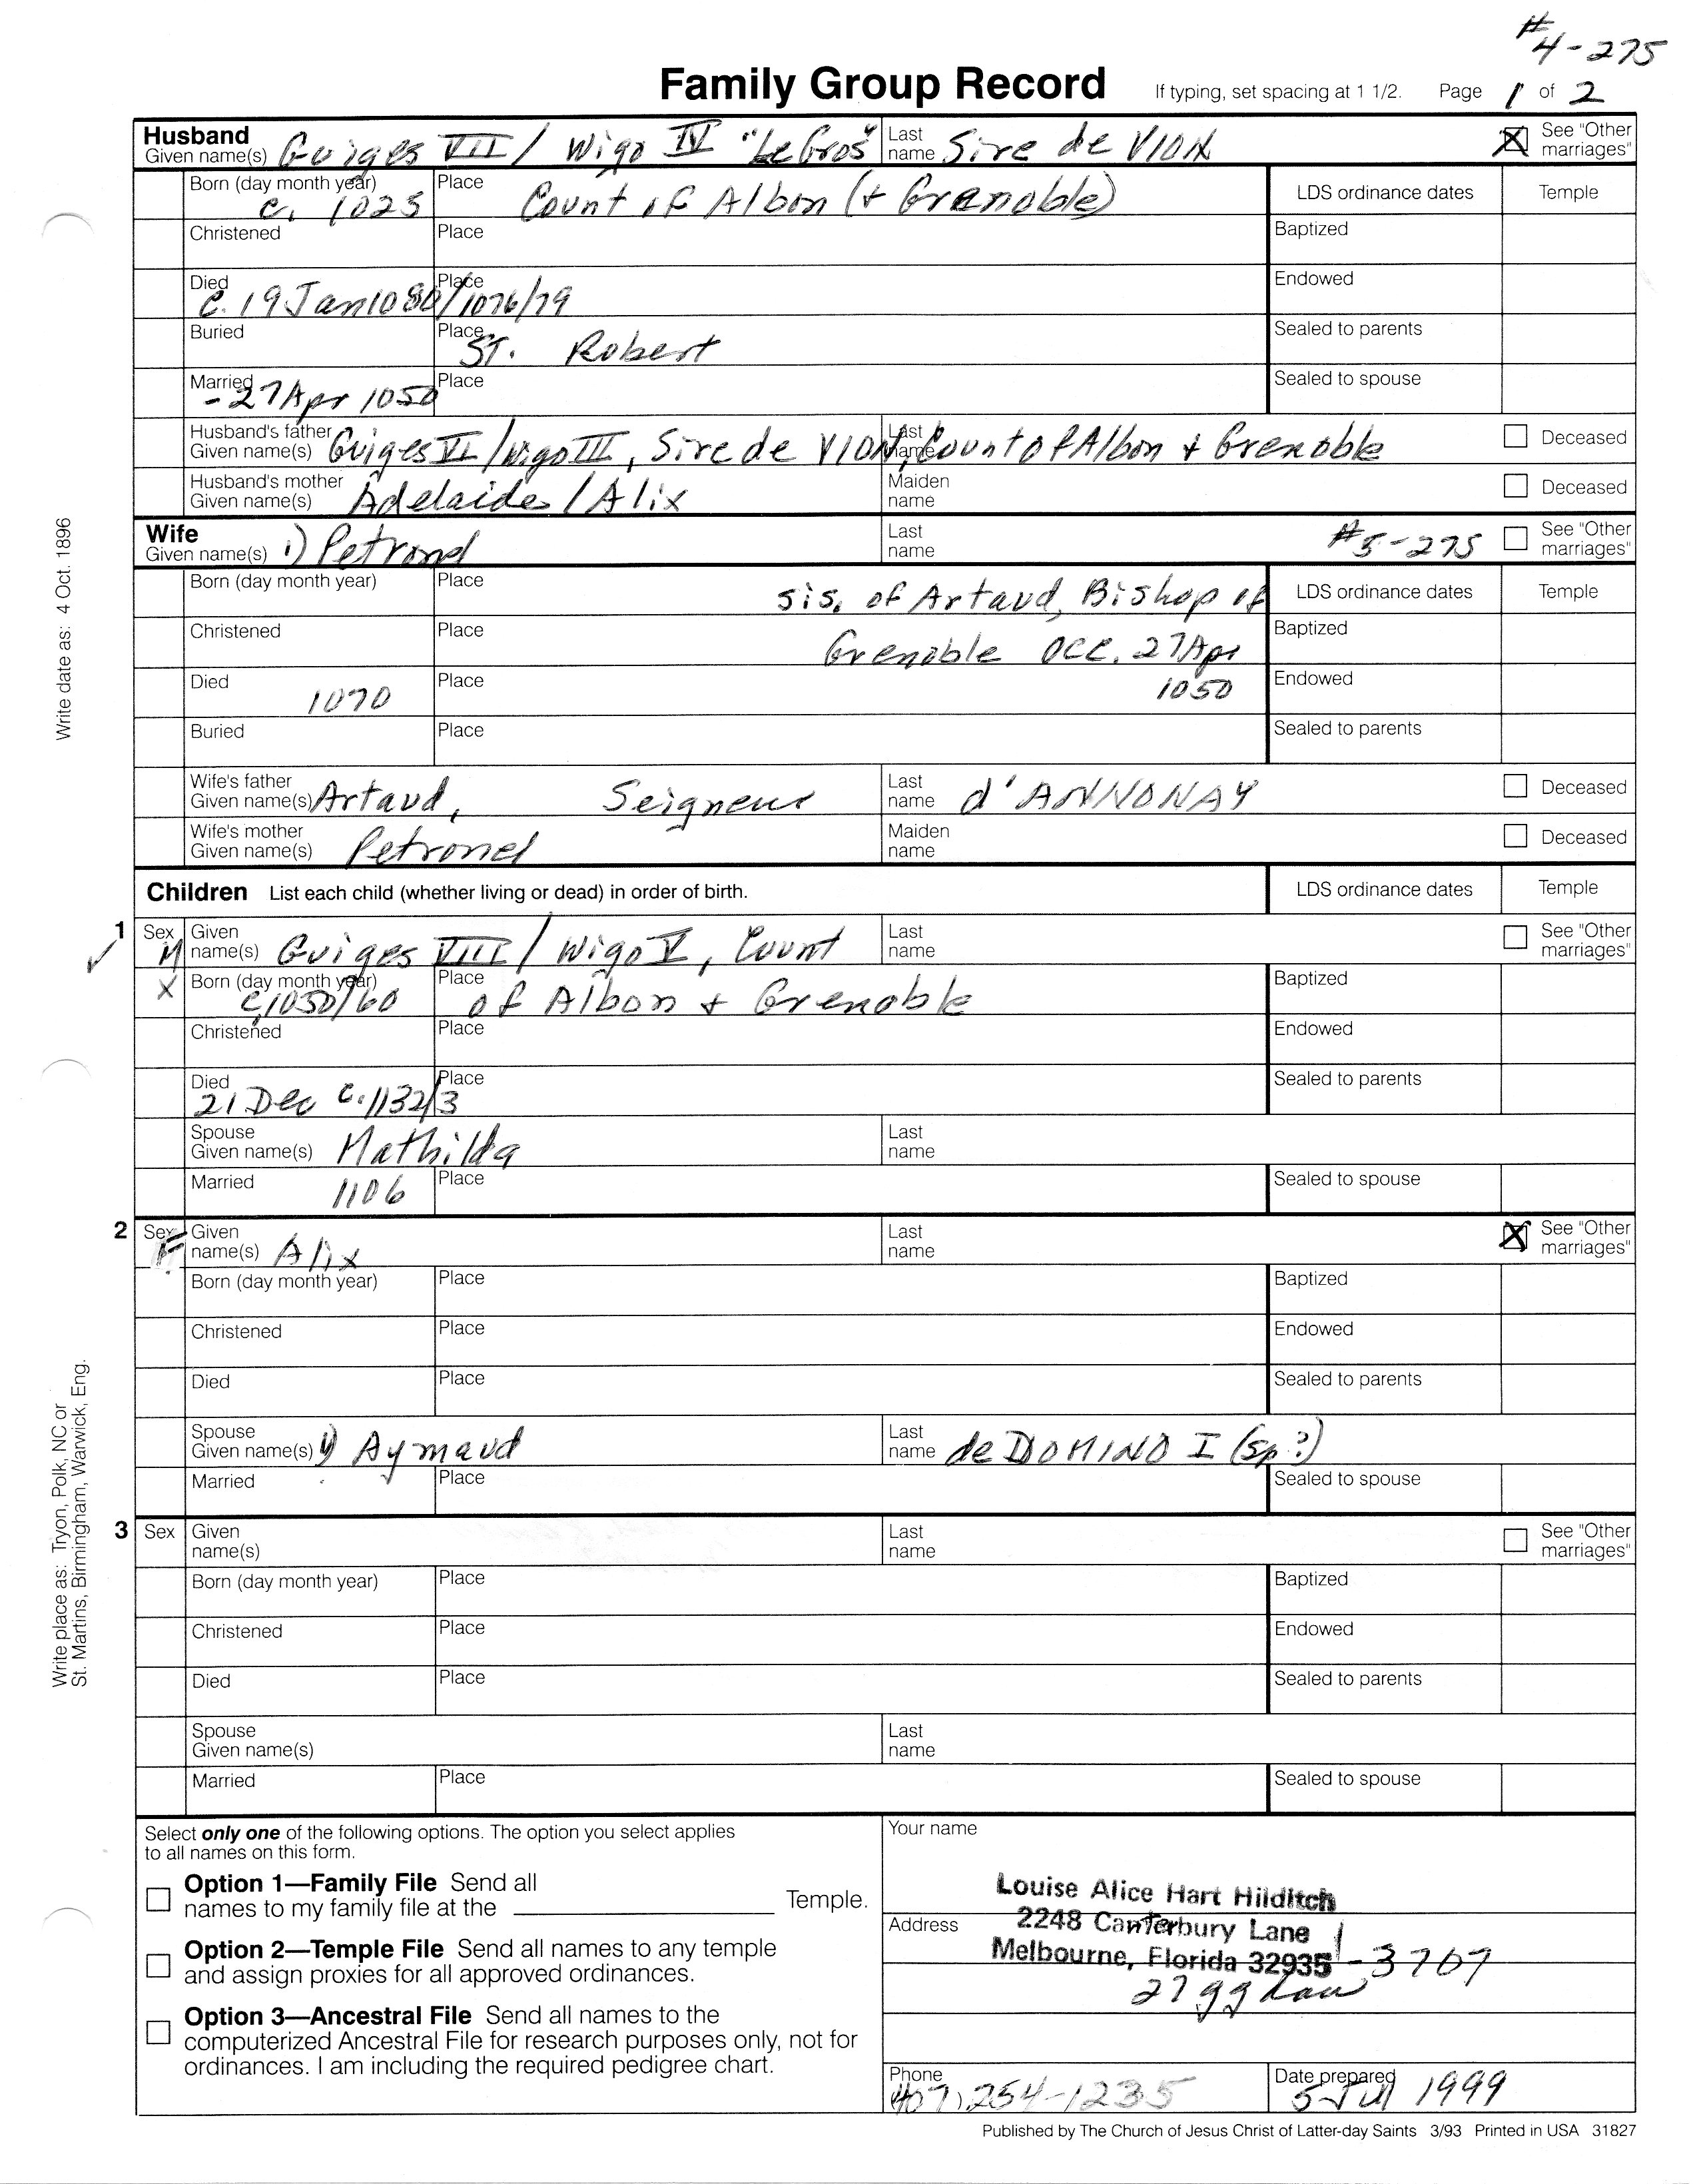 #4-275
Family Group Record If typing, set spacing at 1 1/2. Page 1 of 2
Husband
Given name(s) Guiges VII / Wigo IV "Le Gros" Last name Sire de VION See "Other marriages"
Born (day month year) c. 1025 Place Count of Albon (+ Grenoble) LDS ordinance dates Temple
Christened Place Baptized
Died c. 19 Jan 1080/1076/79 Place Endowed
Buried Place ST. Robert Sealed to parents
Married -27 Apr 1050 Place Sealed to spouse
Husband's father Given name(s) Guiges VI / Wigo III, Sire de VION, Last name Count of Albon + Grenoble Deceased
Husband's mother Given name(s) Adelaide / Alix Maiden name Deceased
Wife
Given name(s) 1) Petronel Last name #5-275 See "Other marriages"
Born (day month year) Place sis. of Artaud, Bishop of LDS ordinance dates Temple
Christened Place Grenoble occ. 27 Apr Baptized
Died 1070 Place 1050 Endowed
Buried Place Sealed to parents
Wife's father Given name(s) Artaud, Seigneur Last name d'ANNONAY Deceased
Wife's mother Given name(s) Petronel Maiden name Deceased
Children List each child (whether living or dead) in order of birth. LDS ordinance dates Temple
1 Sex M Given name(s) Guiges VIII / Wigo V, Count Last name See "Other marriages"
X Born (day month year) c. 1050/60 Place of Albon + Grenoble Baptized
Christened Place Endowed
Died 21 Dec c. 1132/3 Place Sealed to parents
Spouse Given name(s) Mathilda Last name
Married 1106 Place Sealed to spouse
2 Sex F Given name(s) Alix Last name See "Other marriages"
Born (day month year) Place Baptized
Christened Place Endowed
Died Place Sealed to parents
Spouse Given name(s) 1) Aymaud Last name de DOMINO I (sp?)
Married Place Sealed to spouse
3 Sex Given name(s) Last name See "Other marriages"
Born (day month year) Place Baptized
Christened Place Endowed
Died Place Sealed to parents
Spouse Given name(s) Last name
Married Place Sealed to spouse
Select only one of the following options. The option you select applies
to all names on this form.
Option 1—Family File Send all
names to my family file at the Temple.
Option 2—Temple File Send all names to any temple
and assign proxies for all approved ordinances.
Option 3—Ancestral File Send all names to the
computerized Ancestral File for research purposes only, not for
ordinances. I am including the required pedigree chart.
Your name
Louise Alice Hart Hilditch
Address 2248 Canterbury Lane
Melbourne, Florida 32935-3707
27 gg
Phone (407) 254-1235 Date prepared 5 Jul 1999
Published by The Church of Jesus Christ of Latter-day Saints 3/93 Printed in USA 31827
Write date as: 4 Oct. 1896
Write place as: Tryon, Polk, NC or
St. Martins, Birmingham, Warwick, Eng.